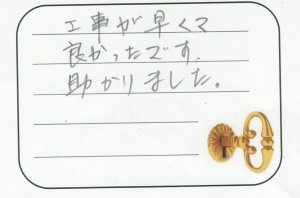 工事が早くて
良かったです.
助かりました。